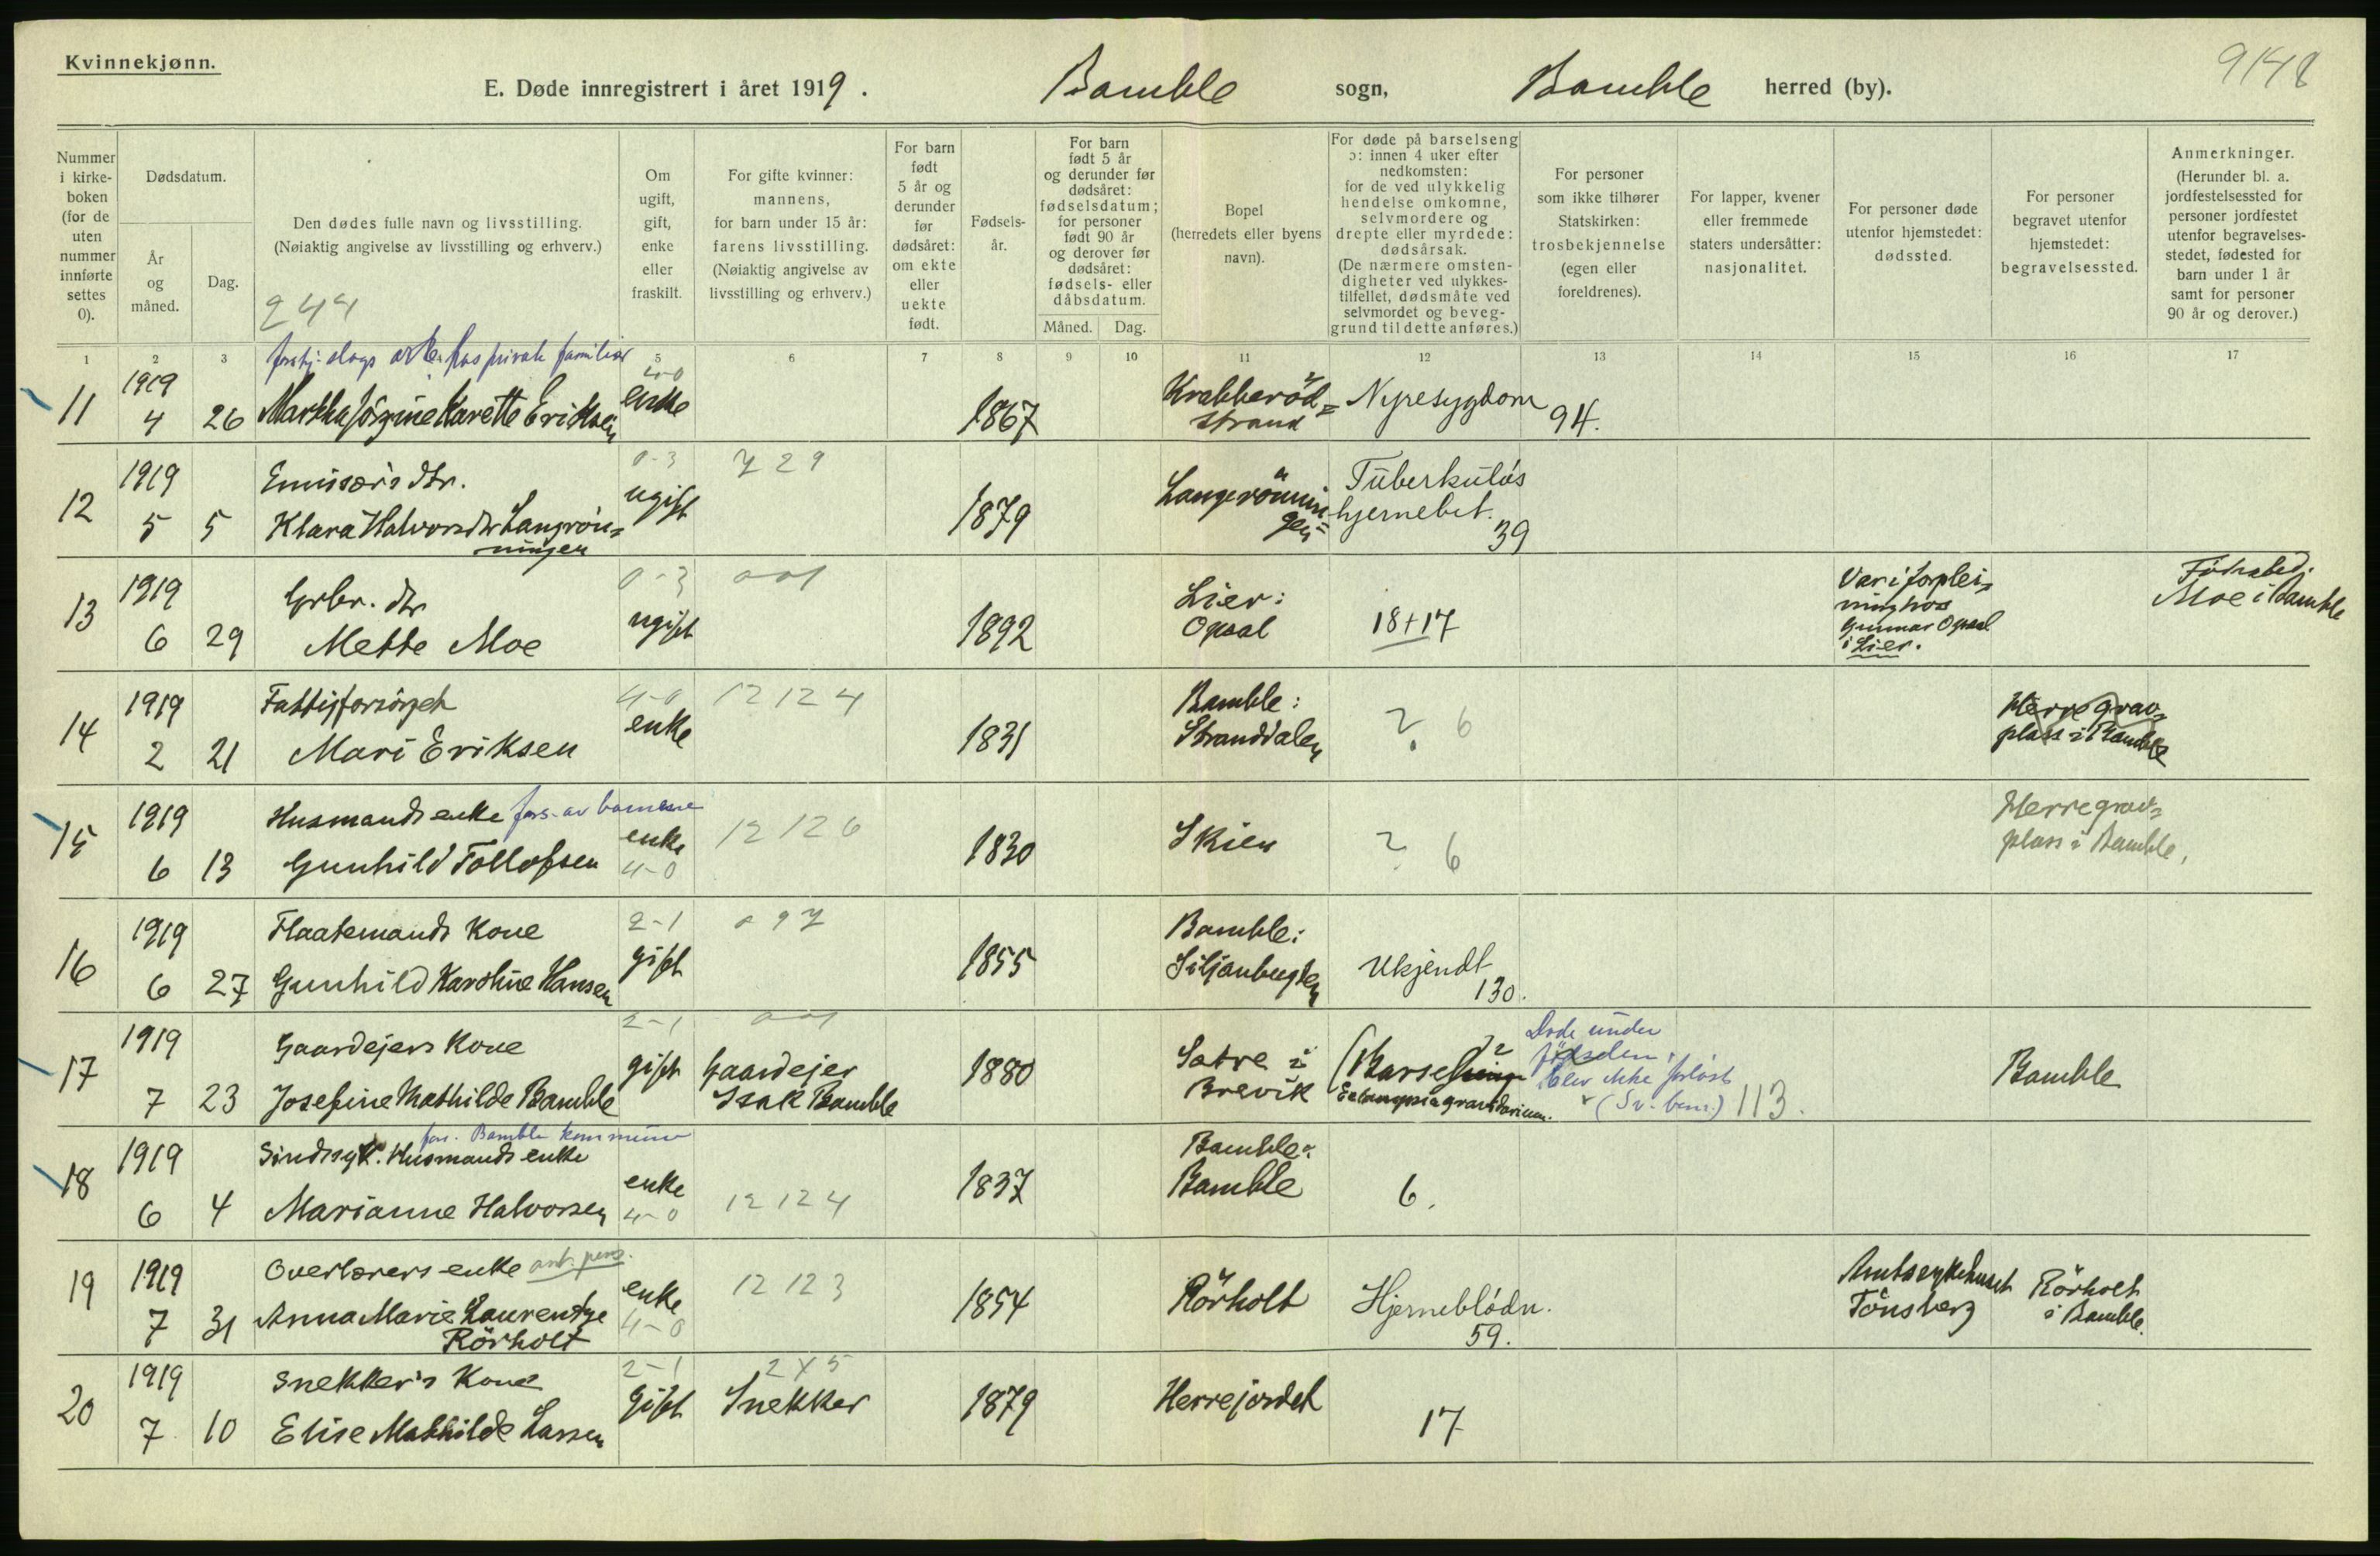 Kvinnekjønn.
9148
E. Døde innregistrert i året 1919. Bamble sogn, Bamble herred (by).
Nummer i kirkeboken (for de uten nummer innførte settes 0).
Dødsdatum.
År og måned.
Dag.
Den dødes fulle navn og livsstilling.
(Nøiaktig angivelse av livsstilling og erhverv.)
244
Om ugift, gift, enke eller fraskilt.
For gifte kvinner: mannens, for barn under 15 år: farens livsstilling. (Nøiaktig angivelse av livsstilling og erhverv.)
For barn født 5 år og derunder før dødsåret: om ekte eller uekte født.
Fødselsår.
For barn født 5 år og derunder før dødsåret: fødselsdatum; for personer født 90 år og derover før dødsåret: fødsels- eller dåbsdatum.
Måned. Dag.
Bopel (herredets eller byens navn).
For døde på barselseng ɔ: innen 4 uker efter nedkomsten: for de ved ulykkelig hendelse omkomne, selvmordere og drepte eller myrdede: dødsårsak. (De nærmere omstendigheter ved ulykkestilfellet, dødsmåte ved selvmordet og beveggrund til dette anføres.)
For personer som ikke tilhører Statskirken: trosbekjennelse (egen eller foreldrenes).
For lapper, kvener eller fremmede staters undersåtter: nasjonalitet.
For personer døde utenfor hjemstedet: dødssted.
For personer begravet utenfor hjemstedet: begravelsessted.
Anmerkninger. (Herunder bl. a. jordfestelsessted for personer jordfestet utenfor begravelsesstedet, fødested for barn under 1 år samt for personer 90 år og derover.)
1 2 3 5 6 7 8 9 10 11 12 13 14 15 16 17
forskj. slags arb. hos private familier
11 1919 4 26 Martha Jörgine Karette Eriksen 4-0 enke 1867 Krabberöd= strand Nyresygdom 94.
12 1919 5 5 Emissærs dtr. Klara Halvorsdtr Langrön= ningen 0-3 ugift 729 1879 Langerönnin gen Tuberkulös hjernebet. 39
13 1919 6 29 Grbr. dtr Mette Moe 0-3 ugift 001 1892 Lier: Opsal 18+17 Var i forplei= ning hos Gunnar Opsal i Lier. Födested: Moe i Bamble
14 1919 2 21 Fattigforsörget Mari Eriksen 4-0 enke 12124 1831 Bamble: Stranddalen ? 6 Herre grav= plass i Bamble
15 1919 6 13 Husmands enke fors. av barnene Gunhild Tollofsen enke 4-0 12126 1830 Skien ? 6 Herre grav= plass i Bamble,
16 1919 6 27 Flaatemands Kone Gunhild Karoline Hansen 2-1 gift 097 1855 Bamble: Siljanbugten Ukjendt 130.
17 1919 7 23 Gaardejers Kone Josefine Mathilde Bamble 2-1 gift 001 Gaardejer Isak Bamble 1880 Satre i Brevik (Barselseng ? Eclampsia gravidarium. Døde under fødselen, blev ikke forløst (Sv. ber.) 113. Bamble
18 1919 6 4 fors. Bamble kommune Sindssyk. Husmands enke Marianne Halvorsen enke 4-0 12124 1837 Bamble: Bamble 6.
19 1919 7 31 Overlærers enke ant. pens. Anna Marie Laurentze Rörholt enke 4-0 12123 1854 Rörholt Hjerneblödn. 59. Amtssykehuset Tönsberg Rörholt i Bamble.
20 1919 7 10 Snekker's Kone Elise Mathilde Larsen 2-1 Gift 2X5 Snekker 1879 Herrejordet 17